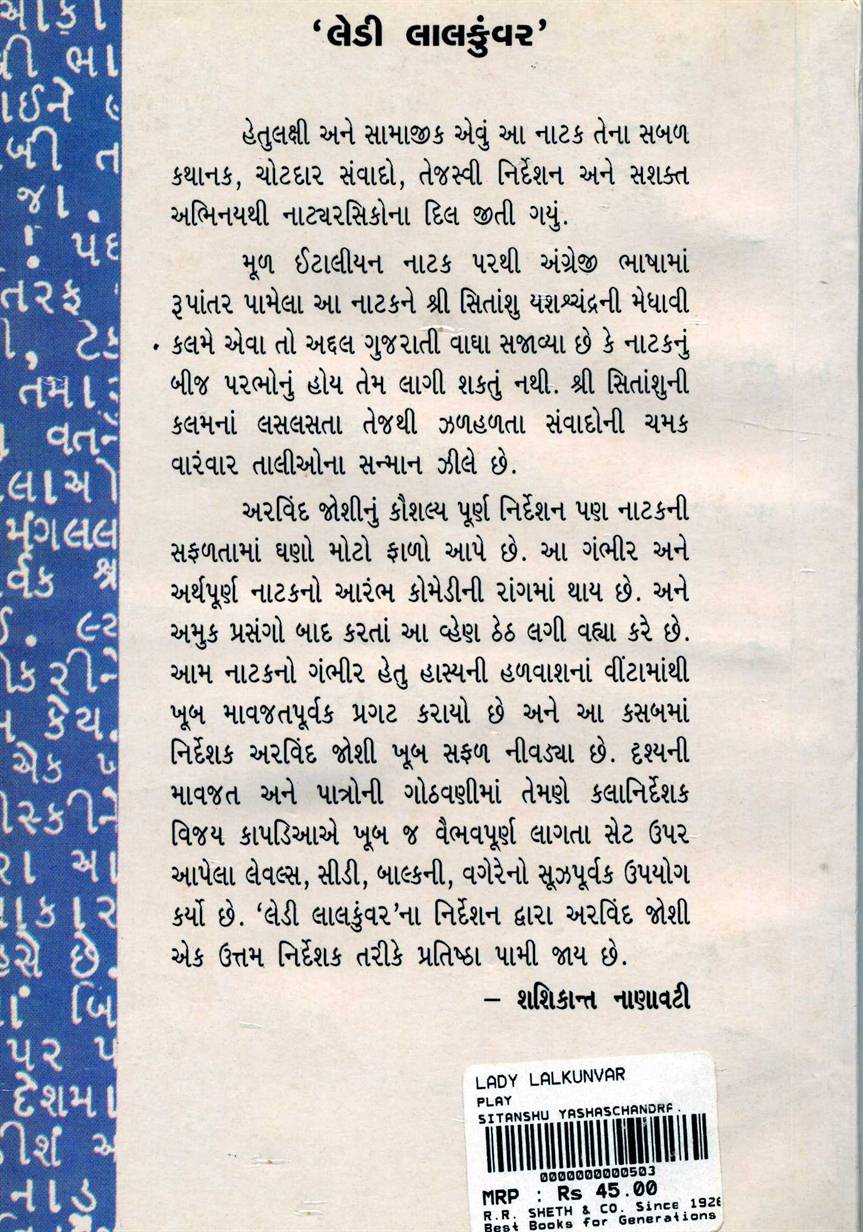 ‘લેડી લાલકુંવર’
હેતુલક્ષી અને સામાજીક એવું આ નાટક તેના સબળ
કથાનક, ચોટદાર સંવાદો, તેજસ્વી નિર્દેશન અને સશક્ત
અભિનયથી નાટ્યરસિકોના દિલ જીતી ગયું.
મૂળ ઈટાલીયન નાટક પરથી અંગ્રેજી ભાષામાં
રૂપાંતર પામેલા આ નાટકને શ્રી સિતાંશુ યશશ્ચંદ્રની મેધાવી
કલમે એવા તો અદ્દલ ગુજરાતી વાઘા સજાવ્યા છે કે નાટકનું
બીજ પરભોનું હોય તેમ લાગી શકતું નથી. શ્રી સિતાંશુની
કલમનાં લસલસતા તેજથી ઝળહળતા સંવાદોની ચમક
વારંવાર તાલીઓના સન્માન ઝીલે છે.
અરવિંદ જોશીનું કૌશલ્ય પૂર્ણ નિર્દેશન પણ નાટકની
સફળતામાં ઘણો મોટો ફાળો આપે છે. આ ગંભીર અને
અર્થપૂર્ણ નાટકનો આરંભ કોમેડીની રાંગમાં થાય છે. અને
અમુક પ્રસંગો બાદ કરતાં આ વ્હેણ ઠેઠ લગી વહ્યા કરે છે.
આમ નાટકનો ગંભીર હેતુ હાસ્યની હળવાશનાં વીંટામાંથી
ખૂબ માવજતપૂર્વક પ્રગટ કરાયો છે અને આ કસબમાં
નિર્દેશક અરવિંદ જોશી ખૂબ સફળ નીવડ્યા છે. દૃશ્યની
માવજત અને પાત્રોની ગોઠવણીમાં તેમણે કલાનિર્દેશક
વિજય કાપડિઆએ ખૂબ જ વૈભવપૂર્ણ લાગતા સેટ ઉપર
આપેલા લેવલ્સ, સીડી, બાલ્કની, વગેરેનો સૂઝપૂર્વક ઉપયોગ
કર્યો છે. ‘લેડી લાલકુંવર’ના નિર્દેશન દ્વારા અરવિંદ જોશી
એક ઉત્તમ નિર્દેશક તરીકે પ્રતિષ્ઠા પામી જાય છે.
– શશિકાન્ત નાણાવટી
LADY LALKUNVAR
PLAY
SITANSHU YASHASCHANDRA.
0000000000503
MRP : Rs 45.00
R.R. SHETH & CO. Since 1926
Best Books for Generations